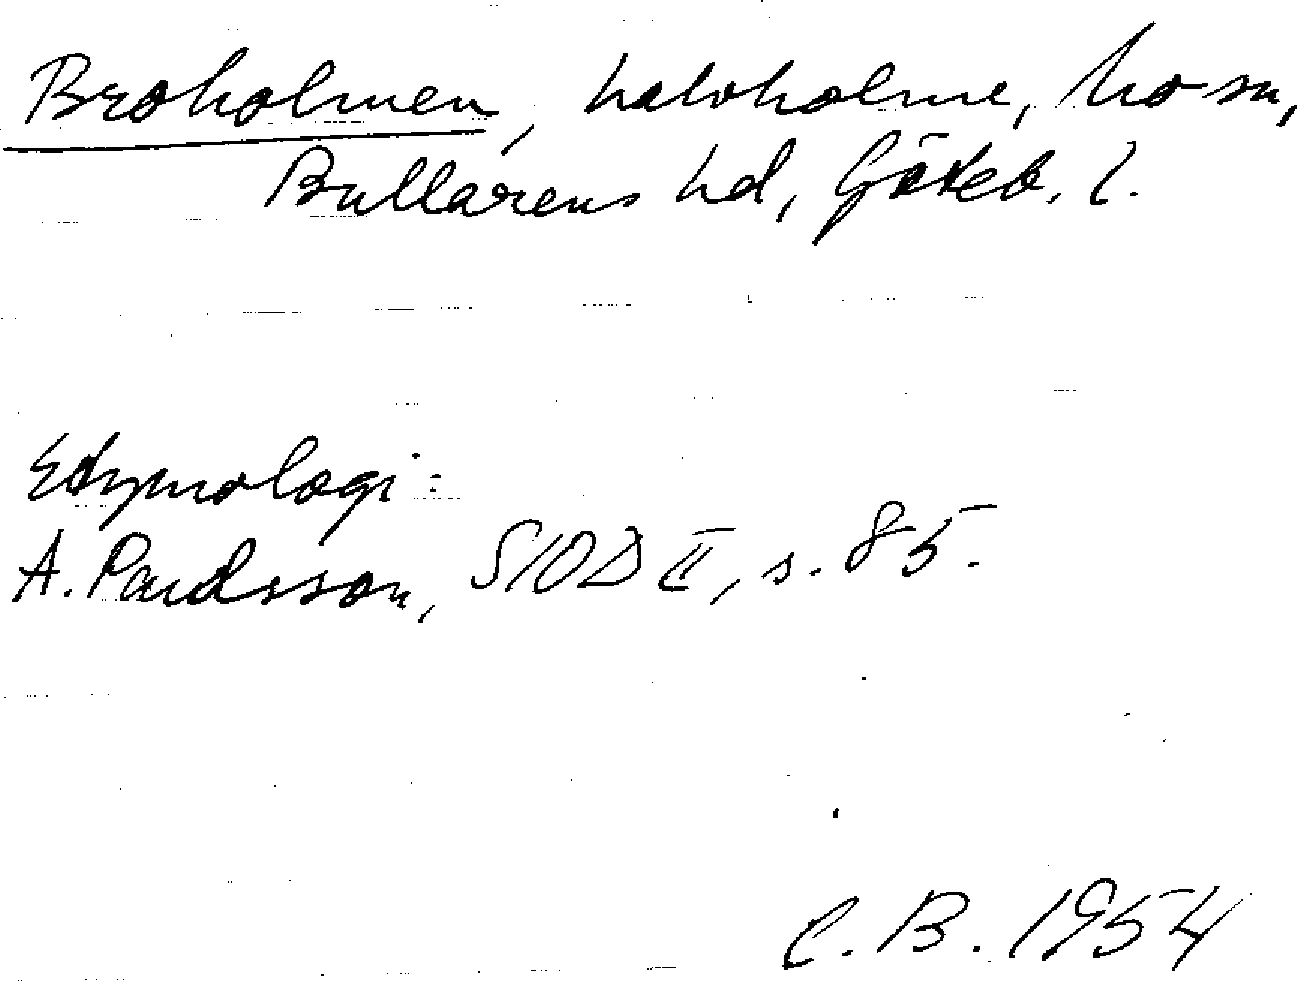 Broholmen, halvholme, Mo sn,
Bullarens hd, Göteb. l.
Etymologi:
A. Paulsson, SIOD II, s. 85.
C. B. 1954